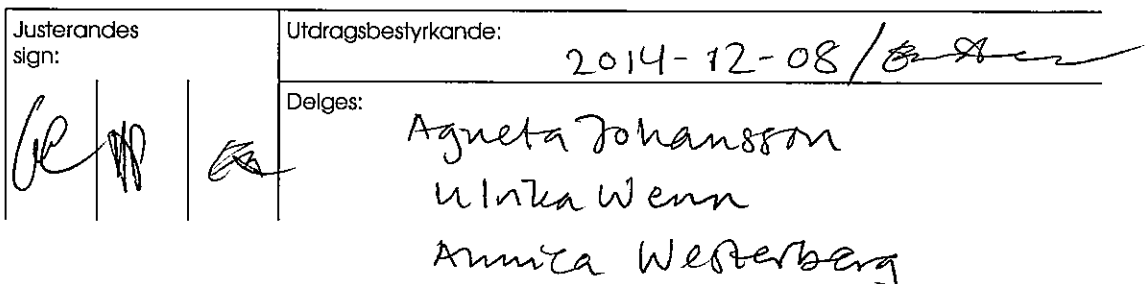 Justerandes
sign:
Utdragsbestyrkande:
2014-12-08/
Delges:
Agneta Johansson
Ulrika Wenn
Annica Westerberg